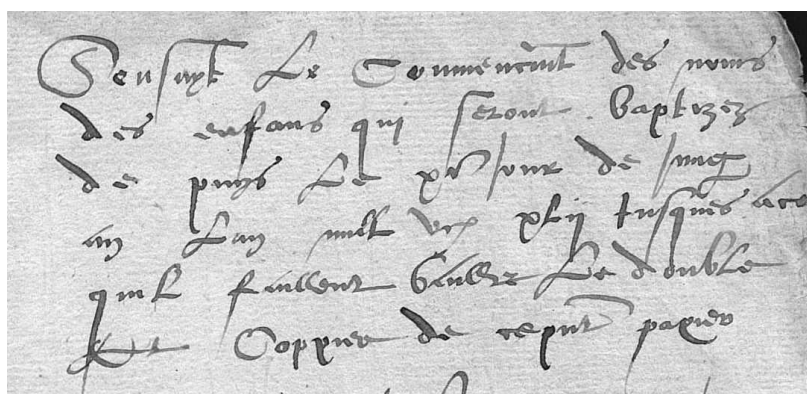 Sensuyt Le Commencemt des noms
des enfans qui seront baptizez
de puys Le xve Jour de Juing
an Lan mil vcz xlii Jusques a ce
quil faillent baillr Le double
Et Coppier de cepnt papier